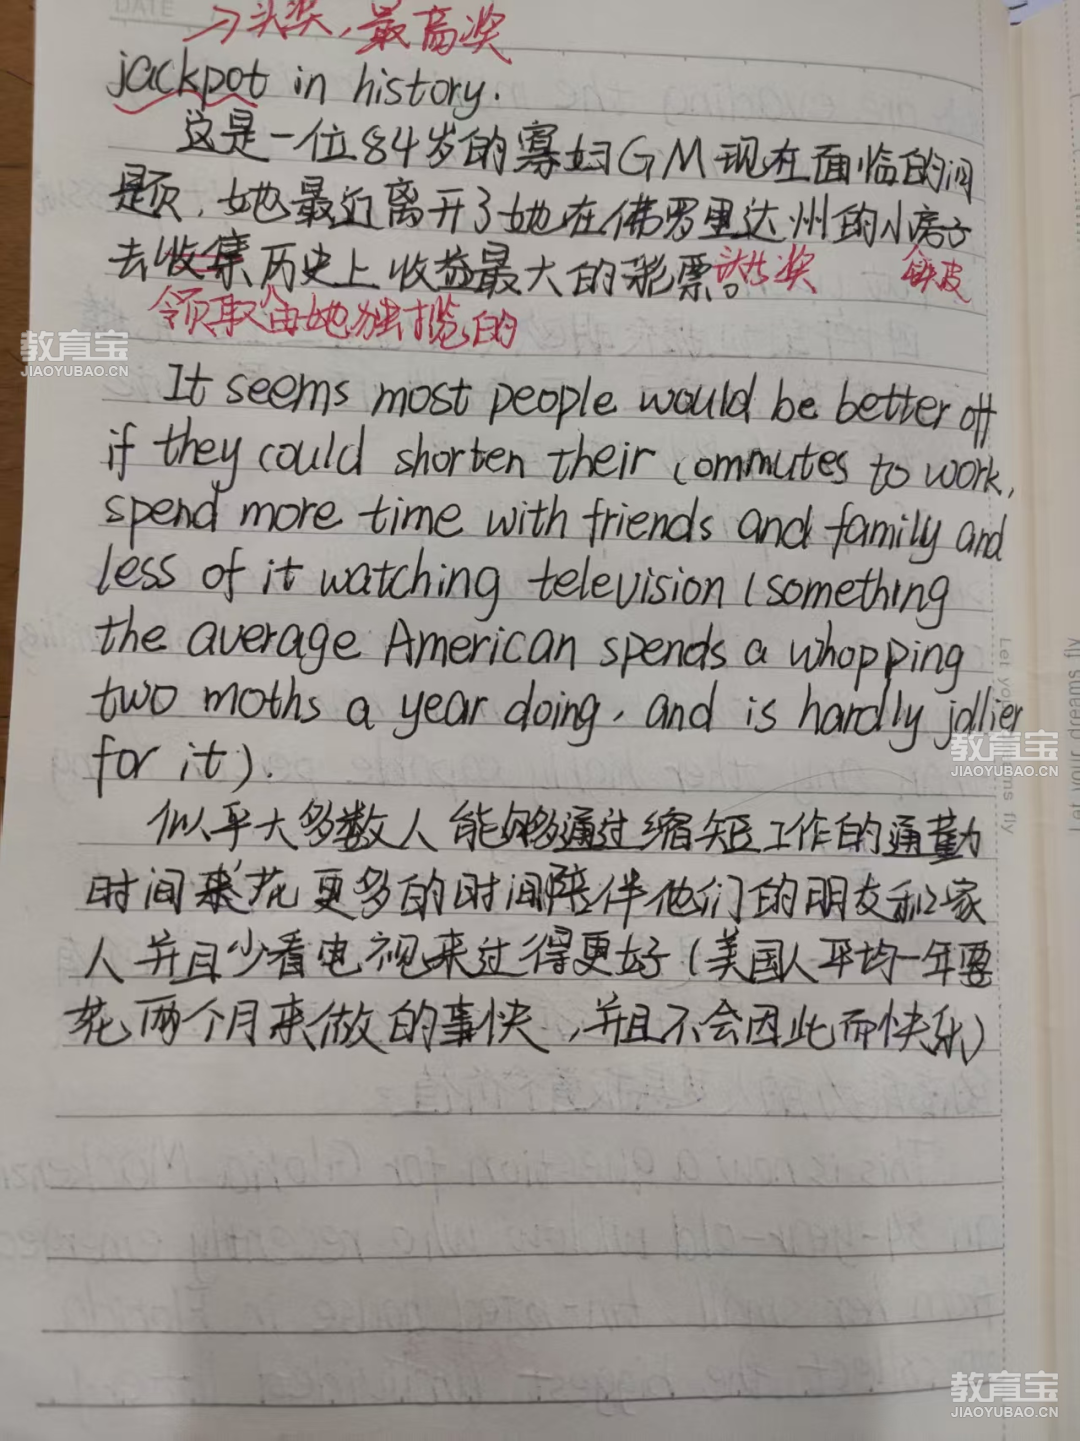 DATE
刁头奖，最高奖
jackpot in history.
这是一位84岁的寡妇GM现在面临的问
题，她最近离开了她在佛罗里达州的小房子
去收集历史上收益最大的彩票。头奖 铁皮
领取由她独揽的
教育宝
JIAOYUBAO.CN
It seems most people would be better off
if they could shorten their commutes to work,
spend more time with friends and family and
less of it watching television (something
the average American spends a whopping
two moths a year doing, and is hardly jollier
for it).
教育宝
JIAOYUBAO.CN
似乎大多数人能够通过缩短工作的通勤
时间来花更多的时间陪伴他们的朋友和家
人并且少看电视来过得更好(美国人平均一年要
花两个月来做的事快，并且不会因此而快乐)
教育宝
JIAOYUBAO.CN